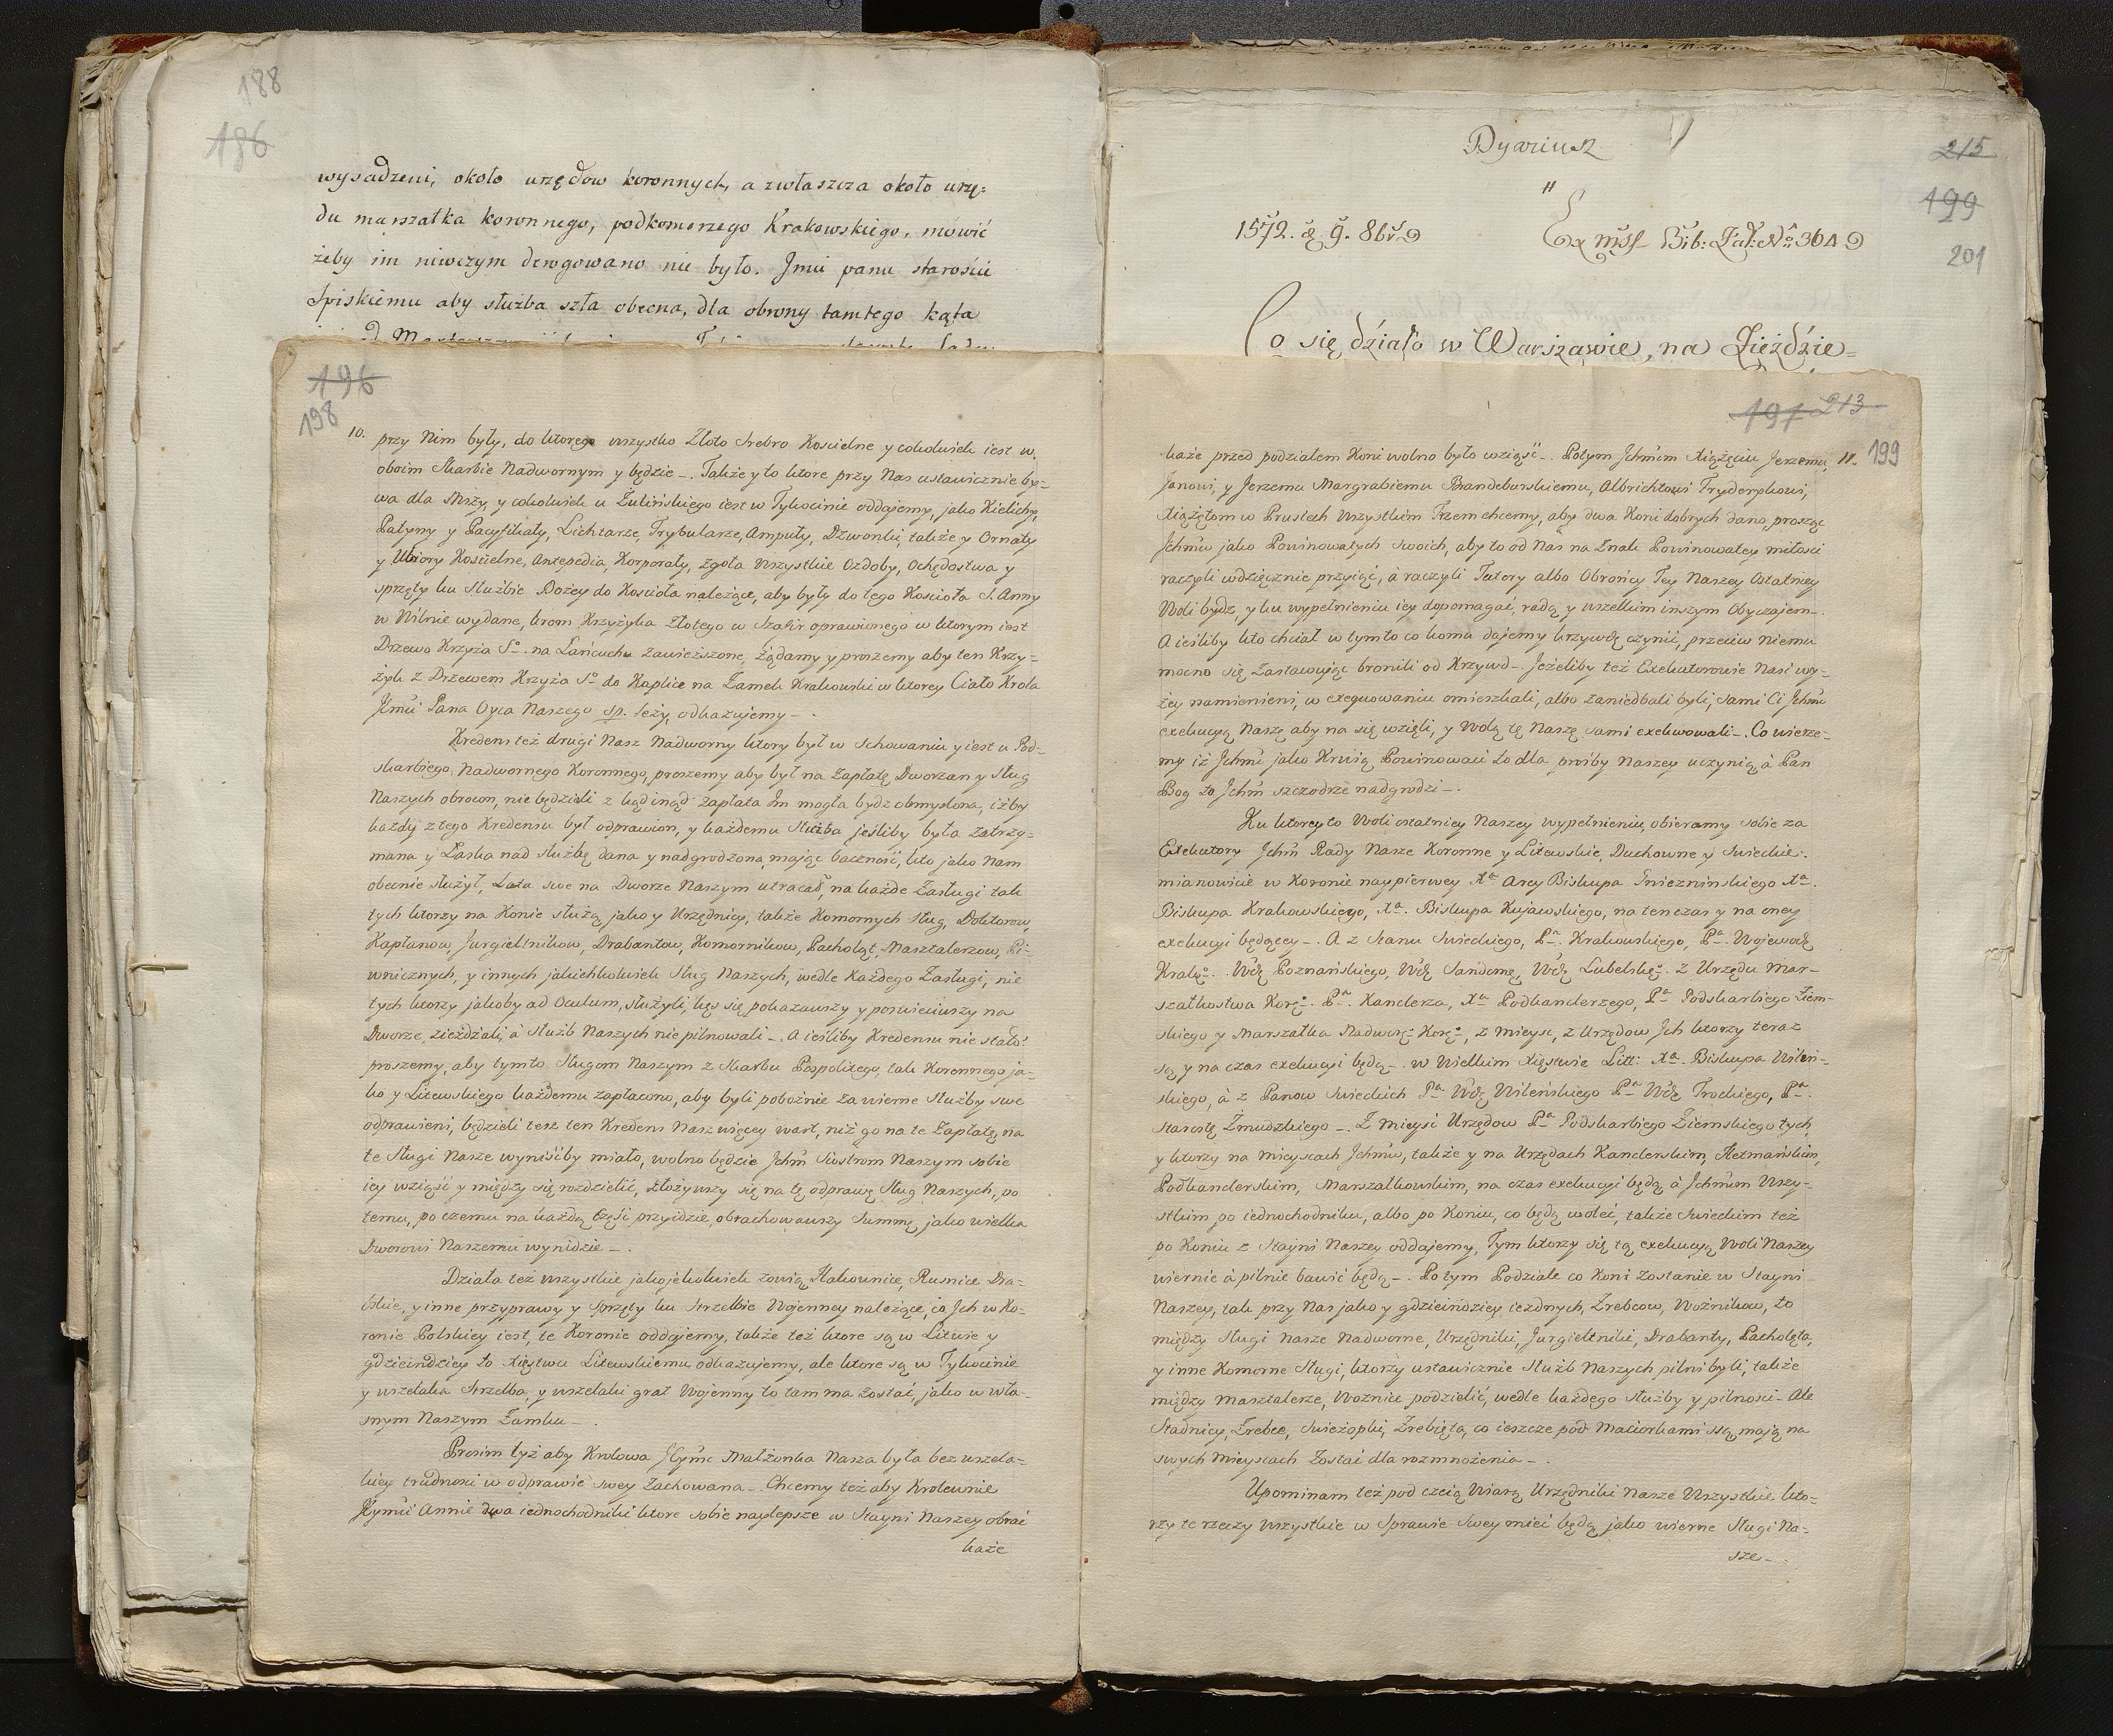 188
186
wysadzeni, około urzędow koronnych, a zwłaszcza około urzę=
du marszałka koronnego, podkomorzego Krakowskiego, mówić
żeby im niwczym derogowano nie było. Jmći panu starościе
Spiskiemu aby służba szła obecna, dla obrony tamtego kąta
196
198
10. przy Nim były, do ktorego wszystko Złoto Srebro Koscielne y cokolwiek iest w
oboim Skarbie Nadwornym y będzie -. Także y to ktore przy Nas ustawicznie by=
wa dla Mszy, y cokolwiek u Zulińskiego iest w Tykocinie oddajemy, jako Kielichy,
Patyny y Pacyfikały, Lichtarze, Trybularze, Ampuły, Dzwonki, także y Ornaty
y Ubiory Koscielne, Antepedia, Korporały, zgoła Wszystkie Ozdoby, Ochędostwa y
sprzęty ku Służbie Bożey do Koscioła należące, aby były do tego Koscioła S. Anny
w Wilnie wydane, krom Krzyżyka Złotego w Szafir oprawionego w ktorym iest
Drzewo Krzyża So. na Łańcuchu zawieszone, Żądamy y proszemy aby ten Krzy=
żyk z Drzewem Krzyża So do Kaplice na Zamek Krakowski w ktorey Ciało Krola
Jmći Pana Oyca Naszego sp. leży, odkazujemy -.
Kredens też drugi Nasz Nadworny ktory był w Schowaniu y iest u Pod=
skarbiego Nadwornego Koronnego, proszemy aby był na Zapłatę Dworzan y Sług
Naszych obrocon, nie będzieli z kąd inąd zapłata Im mogła bydz obmyslona, iżby
każdy z tego Kredensu był odprawion, y każdemu Służba jesliby była zatrzy=
mana y Łaska nad służbę dana y nadgrodzona, mając baczność, kto jako Nam
obecnie służył, Lata swe na Dworze Naszym utracał, na każde Zasługi tak
tych ktorzy na Konie służą, jako y Urzędnicy, także Komornych Sług, Doktorow,
Kapłanow, Jurgieltnikow, Drabantow, Komornikow, Pacholąt, Masztalerzow, Pi=
wnicznych, y innych jakichkolwiek Sług Naszych, wedle Każdego Zasługi, nie
tych ktorzy jakoby ad Oculum, służyli, lecz się pokazawszy y poswieciwszy na
Dworze, zieżdzali, a Służb Naszych nie pilnowali -. A iesliby Kredensu nie stało:
proszemy, aby tymto Sługom Naszym z Skarbu Pospolitego, tak Koronnego ja=
ko y Litewskiego każdemu zapłacono, aby byli pobożnie za wierne Służby swe
odprawieni, będzieli tesz ten Kredens Nasz więcey wart, niż go na te Zapłatę na
te Sługi Nasze wyniśćby miało, wolno będzie Jchm Siostrom Naszym sobie
iey wziąść y między się rozdzielić, złożywszy się na tę odprawę Sług Naszych, po
temu, po czemu na każdą Część przyidzie, obrachowawszy Summę, jako wielka
Dworowi Naszemu wynidzie -.
Działa też wszystkie jakojekolwiek zowią Hakownice, Rusnice Dra=
bskie, y inne przyprawy y Sprzęty ku Strzelbie Wojenney należące, co Jch w Ko=
ronie Polskiey iest, te Koronie oddajemy, także też ktore są w Litwie y
gdzieindziey to Xięstwu Litewskiemu odkazujemy, ale ktore są w Tykocinie
y wszelaka Strzelba, y wszelaki grat Wojenny to tam ma zostać, jako w wła=
snym Naszym Zamku -.
Prosim tyż aby Krolowa JEymć Małżonka Nasza była bez wszela=
kiey trudnosci w odprawie swey zachowana -. Chcemy też aby Krolewnie
JEymći Annie dwa iednochodniki ktore sobie naylepsze w Stayni Naszey obrać
każe
Dyariusz
215
199
201
1572. 9. 8br
Ex mss Bib: Zał: No 304
Co się działo w Warszawie, na Zieździe=
197 213
199
każe przed podziałem Koni wolno było wziąść -. Potym Jchmćm Xiążęciu Jerzemu, 11.
Janowi, y Jerzemu Margrabiemu Brandeburskiemu, Albrichtowi Fryderykowi,
Xiążętom w Prusiech Wszystkim Trzem chcemy, aby dwa Koni dobrych dano, prosząc
Jchmćw jako Powinowatych swoich, aby to od Nas na Znak Powinowatey miłości
raczyli wdzięcznie przyiąć, a raczyli Tutory albo Obrońcy Tey Naszey Ostatniey
Woli bydz, y ku wypełnieniu iey dopomagać, radą y wszelkim inszym Obyczajem -.
A iesliby kto chciał w tym to co komu dajemy krzywdę czynić, przeciw niemu
mocno się zastawując bronili od Krzywd -. Jeżeliby też Exekutorowie Nasi wy=
żey namienieni, w exequowaniu omieszkali, albo zaniedbali byli, sami Ci Jchmć
exekucyą Naszę aby na się wzięli, y Wolą tę Naszę sami exekwowali -. Co wierze=
my iż Jchmć jako Krwią Powinowaci to dla prośby Naszey uczynią à Pan
Bog za Jchm szczodrze nadgrodzi -.
Ku ktoreyto Woli ostatniey Naszey wypełnieniu, obieramy sobie za
Exekutory Jchm Rady Nasze Koronne y Litewskie, Duchowne y Swieckie.
mianowicie w Koronie naypierwey Xa Arcy Biskupa Gniezninskiego Xa.
Biskupa Krakowskiego, Xa. Biskupa Kujawskiego, na ten czas y na oney
exekucyi będącey -. A z Stanu Swieckiego, Pa. Krakowskiego, Pa. Wojewodę
Krakgo. Wdę Poznańskiego, Wdę Sandomę, Wdę Lubelskgo. z Urzędu Mar-
szałkostwa Korgo. Pa. Kanclerza, Xa Podkanclerzego, Pa Podskarbiego Ziem-
skiego y Marszałka Nadworgo Korgo, z mieysc, z Urzędow Jch ktorzy teraz
są y na czas exekucyi będą -. w Wielkim Xięstwie Litt: Xa. Biskupa Wilen-
skiego, à z Panow Swieckich Pa Wdę Wileńskiego Pa Wdę Trockiego, Pa.
Starostę Żmudzkiego -. Z mieysc Urzędow Pa Podskarbiego Ziemskiego tych,
y ktorzy na mieyscach Jchmćw, także y na Urzędach Kanclerskim, Hetmańskim,
Podkanclerskim, Marszałkowskim, na czas exekucyi będą à Jchmćm Wszy-
stkim po iednochodniku, albo po Koniu, co będą woleć, także Swieckim też
po Koniu z Stayni Naszey oddajemy, Tym ktorzy się tą exekucyą Woli Naszey
wiernie à pilnie bawić będą -. Po tym Podziale co Koni zostanie w Stayni
Naszey, tak przy Nas jako y gdzieindziey iezdnych, Zrebcow, Woźnikow, to
między Sługi Nasze Nadworne, Urzędniki, Jurgieltniki, Drabanty, Pacholęta,
y inne Komorne Sługi, ktorzy ustawicznie Służb Naszych pilni byli, także
między Masztalerze, Woznice podzielić, wedle każdego służby y pilnosci - Ale
Stadnicy, Zrebce, Swieżopki, Zrebięta, co ieszcze pod Maciorkami ssą, mają na
swych Mieyscach Zostać dla rozmnożenia -.
Upominam też pod czcią Wiarą Urzędniki Nasze Wszystkie kto=
rzy te rzeczy wszystkie w Sprawie Swey mieć będą, jako wierne Sługi Na=
sze -